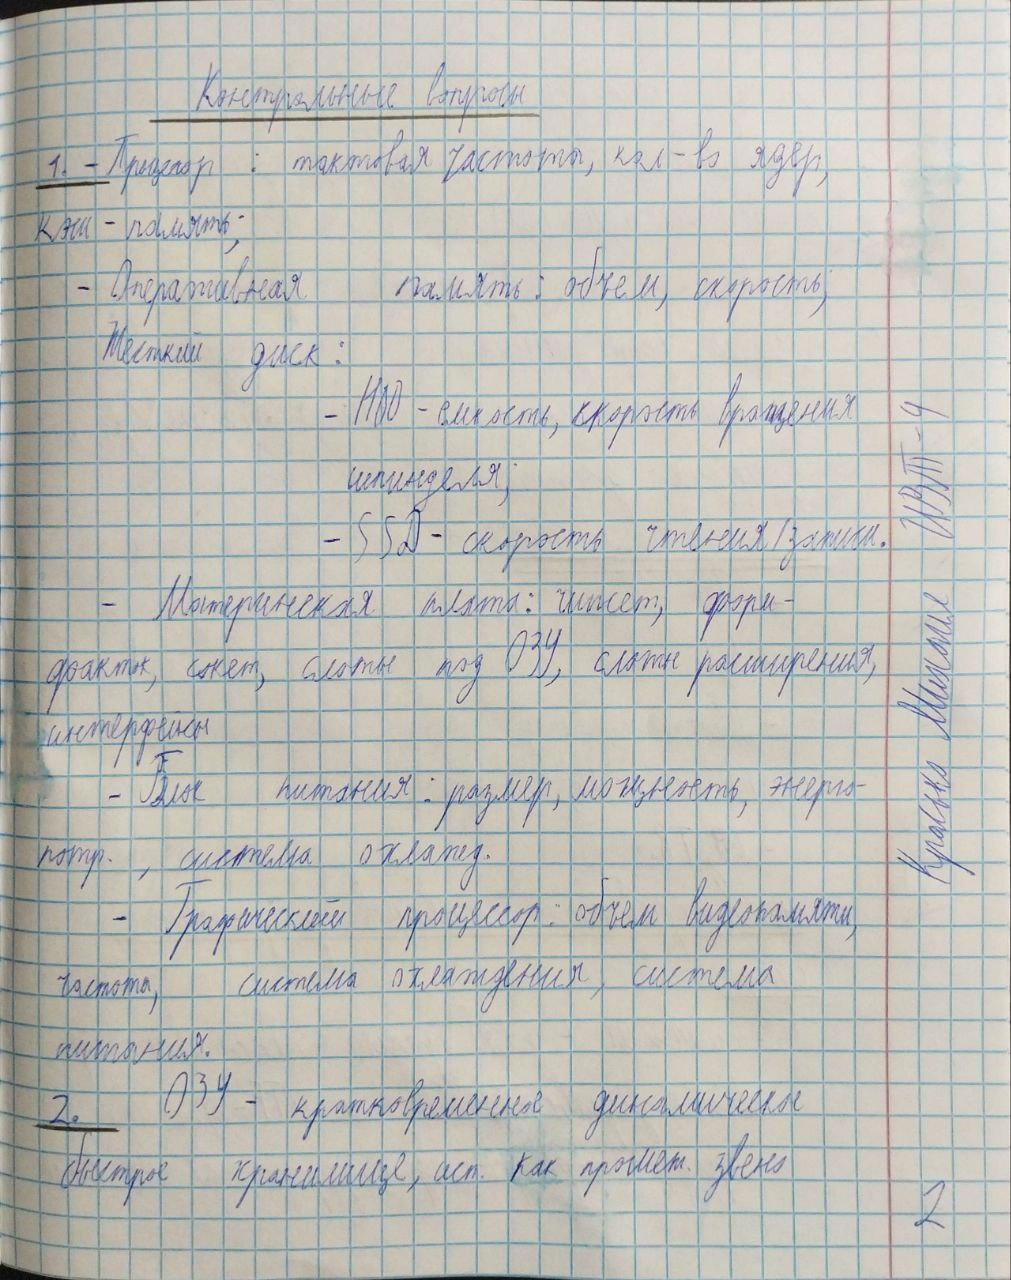 Контрольные вопросы
1. - Процесор : тактовая частоты, кол-во ядер,
кэш - память;
- Оперативная память: объем, скорость;
Жесткий диск:
- HDD - емкость, скорость вращения
шпинделя;
- SSD - скорость чтения/записи.
- Материнская плата: чипсет, форм-
фактор, сокет, слоты под ОЗУ, слоты расширения,
интерфейсы
- Блок питания: размер, мощность, энерго-
потр. , система охлажд.
- Графический процессор: объем видеопамяти,
частота, система охлаждения, система
питания.
2. ОЗУ - кратковременное динамическое
быстрое хранилище, исп. как промеж. звено
Михаил
2